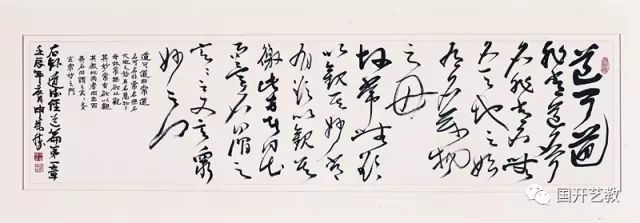 道可道
非常道名可
名非常名無
名天地之始
有名万物
之母
故常無欲
以觀其妙常
有欲以觀其
徼此兩者同出
而異名同謂之
玄玄之又玄眾
妙之門
道可道非常道
名可名非常名無名
天地之始有名萬物
之母故常無欲以觀
其妙常有欲以觀
其徼此兩者同出而
異名同謂之玄玄之又
玄眾妙之門
右録道德經道篇第一章
壬辰年
国开艺教